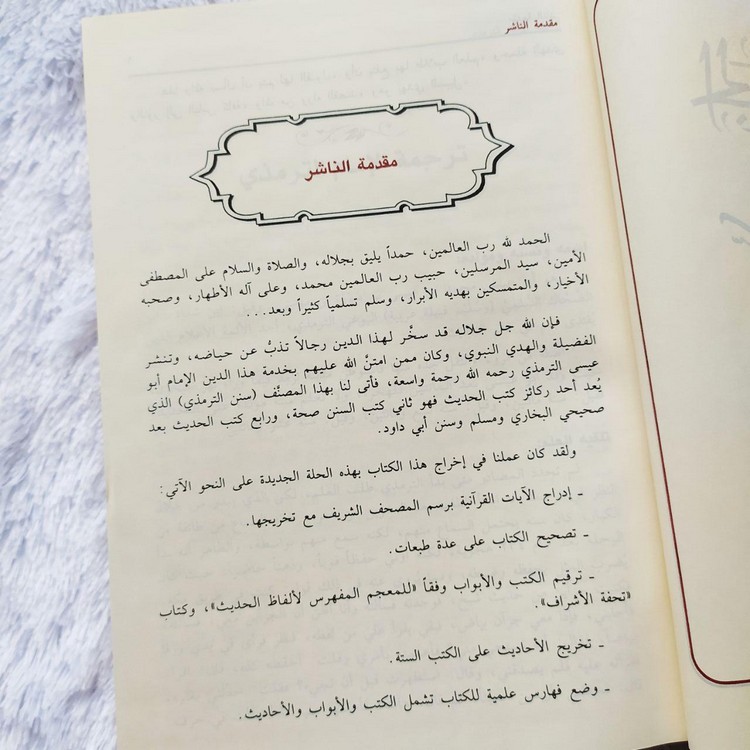 مقدمة الناشر
مقدمة الناشر
الحمد لله رب العالمين، حمداً يليق بجلاله، والصلاة والسلام على المصطفى
الأمين، سيد المرسلين، حبيب رب العالمين محمد، وعلى آله الأطهار، وصحبه
الأخيار، والمتمسكين بهديه الأبرار، وسلم تسلمياً كثيراً وبعد...
فإن الله جل جلاله قد سخَّر لهذا الدين رجالاً تذبُّ عن حياضه، وتنشر
الفضيلة والهدي النبوي، وكان ممن امتنَّ الله عليهم بخدمة هذا الدين الإمام أبو
عيسى الترمذي رحمه الله رحمة واسعة، فأتى لنا بهذا المصنَّف (سنن الترمذي) الذي
يُعد أحد ركائز كتب الحديث فهو ثاني كتب السنن صحة، ورابع كتب الحديث بعد
صحيحي البخاري ومسلم وسنن أبي داود.
ولقد كان عملنا في إخراج هذا الكتاب بهذه الحلة الجديدة على النحو الآتي:
ـ إدراج الآيات القرآنية برسم المصحف الشريف مع تخريجها.
ـ تصحيح الكتاب على عدة طبعات.
ـ ترقيم الكتب والأبواب وفقاً «للمعجم المفهرس لألفاظ الحديث»، وكتاب
«تحفة الأشراف».
ـ تخريج الأحاديث على الكتب الستة.
ـ وضع فهارس علمية للكتاب تشمل الكتب والأبواب والأحاديث.